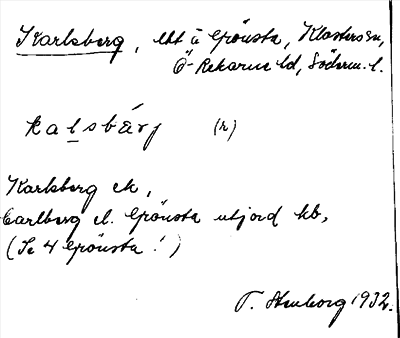 Karlsberg, lht u Grönsta, Klosters sn,
Ö-Rekarne hd, Söderm. l.
kalsbärj (h)
Karlsberg ek,
Carlberg el. Grönsta utjord kb,
(Se 4 Grönsta!)
T. Stenborg 1932.